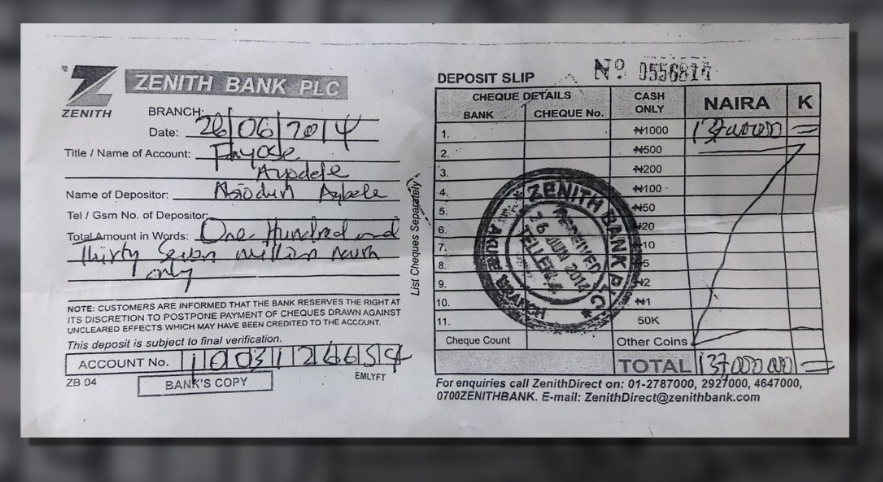 ZENITH
ZENITH BANK PLC
BRANCH:
Date: 26 06 2014
Title / Name of Account: Fayose
Ayodele
Name of Depositor: Abiodun Agbele
Tel / Gsm No. of Depositor:
Total Amount in Words: One Hundred and
thirty Seven million Naira
only
NOTE: CUSTOMERS ARE INFORMED THAT THE BANK RESERVES THE RIGHT AT
ITS DISCRETION TO POSTPONE PAYMENT OF CHEQUES DRAWN AGAINST
UNCLEARED EFFECTS WHICH MAY HAVE BEEN CREDITED TO THE ACCOUNT.
This deposit is subject to final verification.
ACCOUNT No. 1003126654
ZB 04
BANK'S COPY
EMLYFT
List Cheques Separately
DEPOSIT SLIP
Nº 0556814
CHEQUE DETAILS
BANK
CHEQUE No.
CASH
ONLY
NAIRA
K
1. ₦1000 137000000 =
2. ₦500
3. ₦200
4. ₦100
5. ₦50
6. ₦20
7. ₦10
8. ₦5
9. ₦2
10. ₦1
11. 50K
Cheque Count
Other Coins
TOTAL 137,000,000 =
ZENITH BANK PLC
RECEIVED
26 JUN 2014
TELLER 4
BRANCH
For enquiries call ZenithDirect on: 01-2787000, 2927000, 4647000,
0700ZENITHBANK. E-mail: ZenithDirect@zenithbank.com